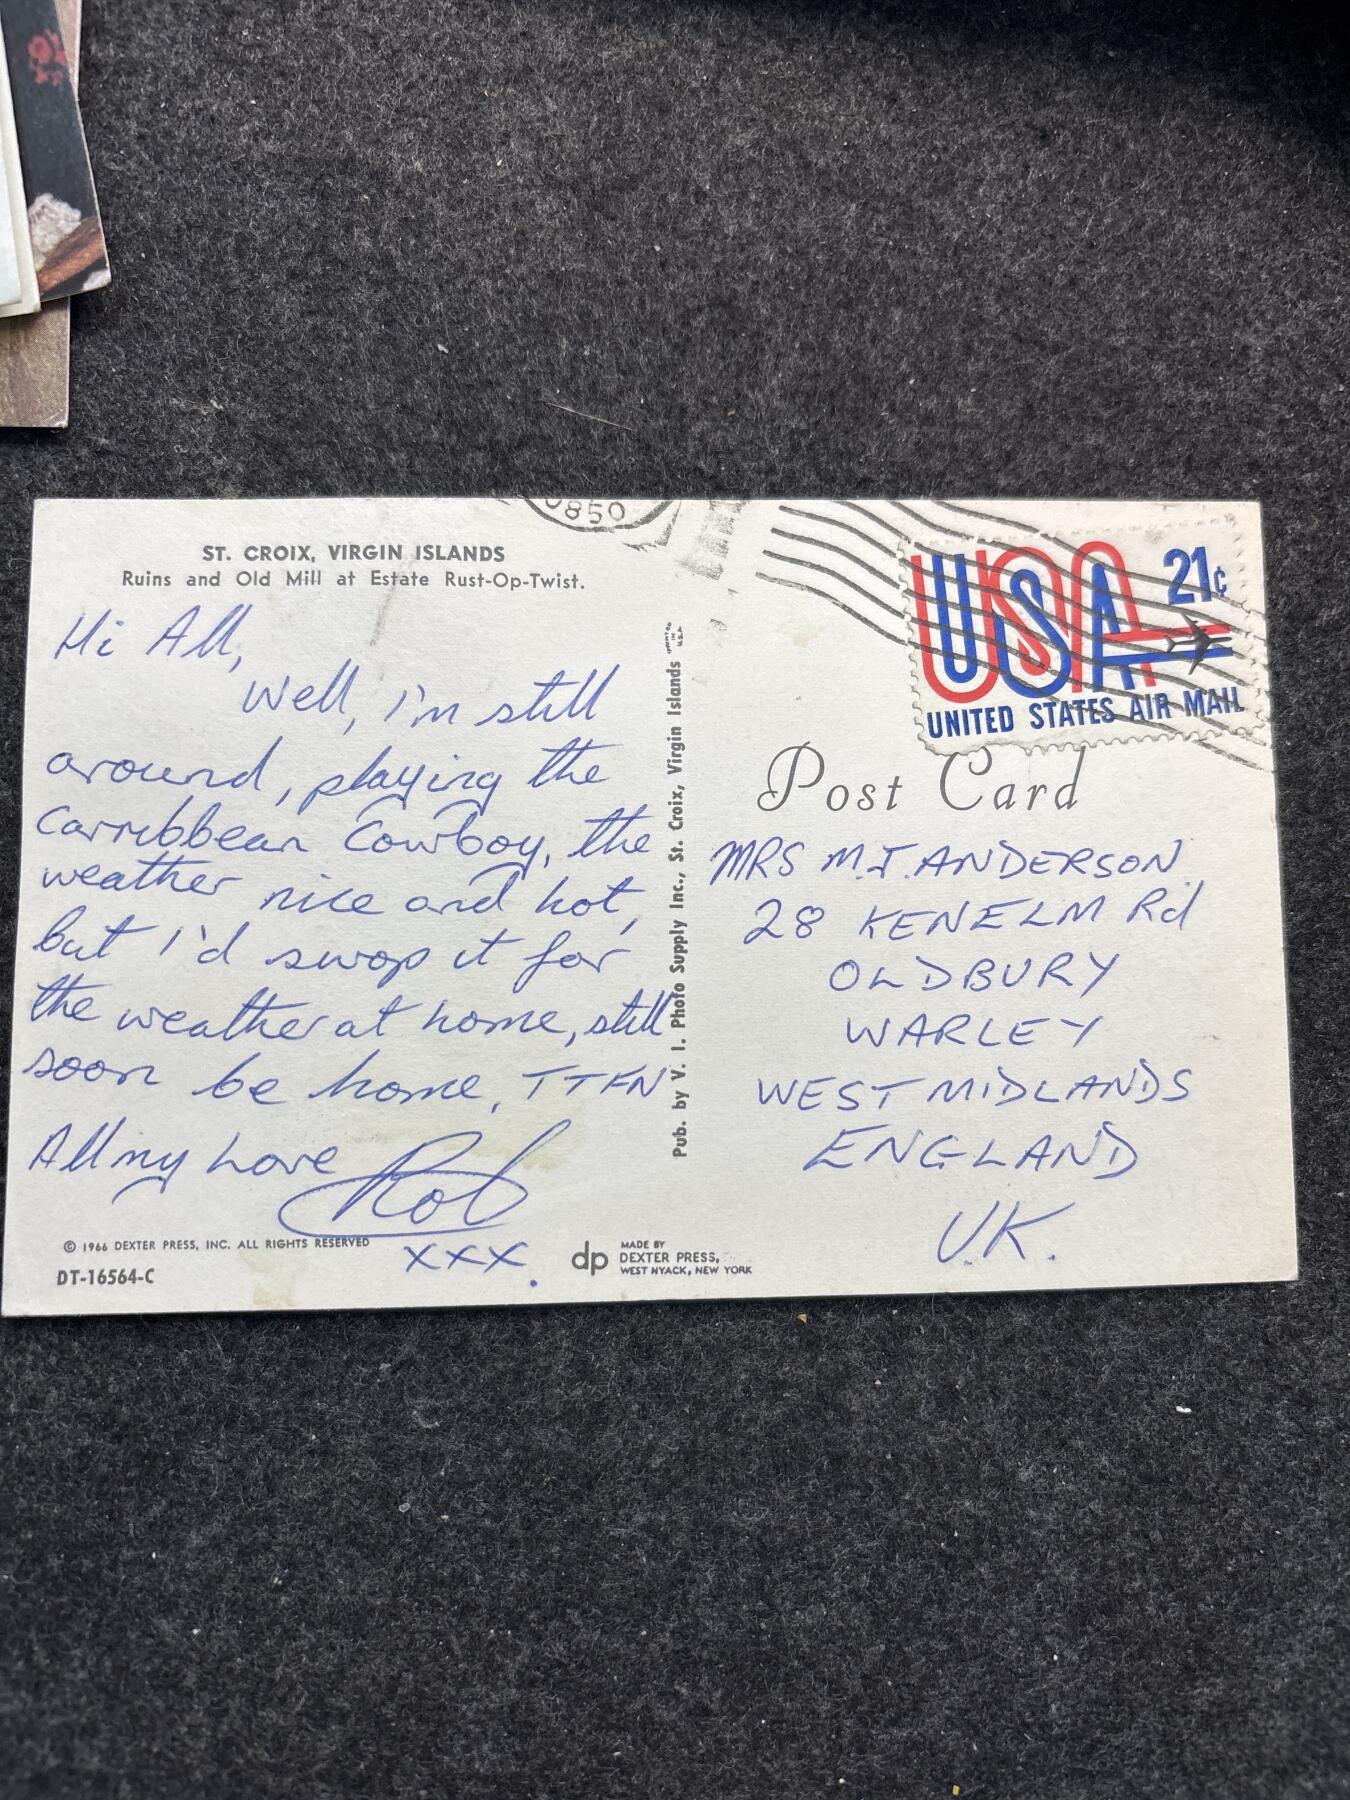 0850
ST. CROIX, VIRGIN ISLANDS
Ruins and Old Mill at Estate Rust-Op-Twist.
Hi All,
Well, I'm still
around, playing the
Carribbean Cowboy, the
weather nice and hot,
but I'd swop it for
the weather at home, still
soon be home, TTFN
All my Love Rob
xxx.
© 1966 DEXTER PRESS, INC. ALL RIGHTS RESERVED
DT-16564-C
dp
MADE BY
DEXTER PRESS,
WEST NYACK, NEW YORK
Pub. by V. I. Photo Supply Inc., St. Croix, Virgin Islands
PRINTED
IN
U.S.A.
USA 21¢
UNITED STATES AIR MAIL
Post Card
MRS M.J. ANDERSON
28 KENELM Rd
OLDBURY
WARLEY
WEST MIDLANDS
ENGLAND
U.K.